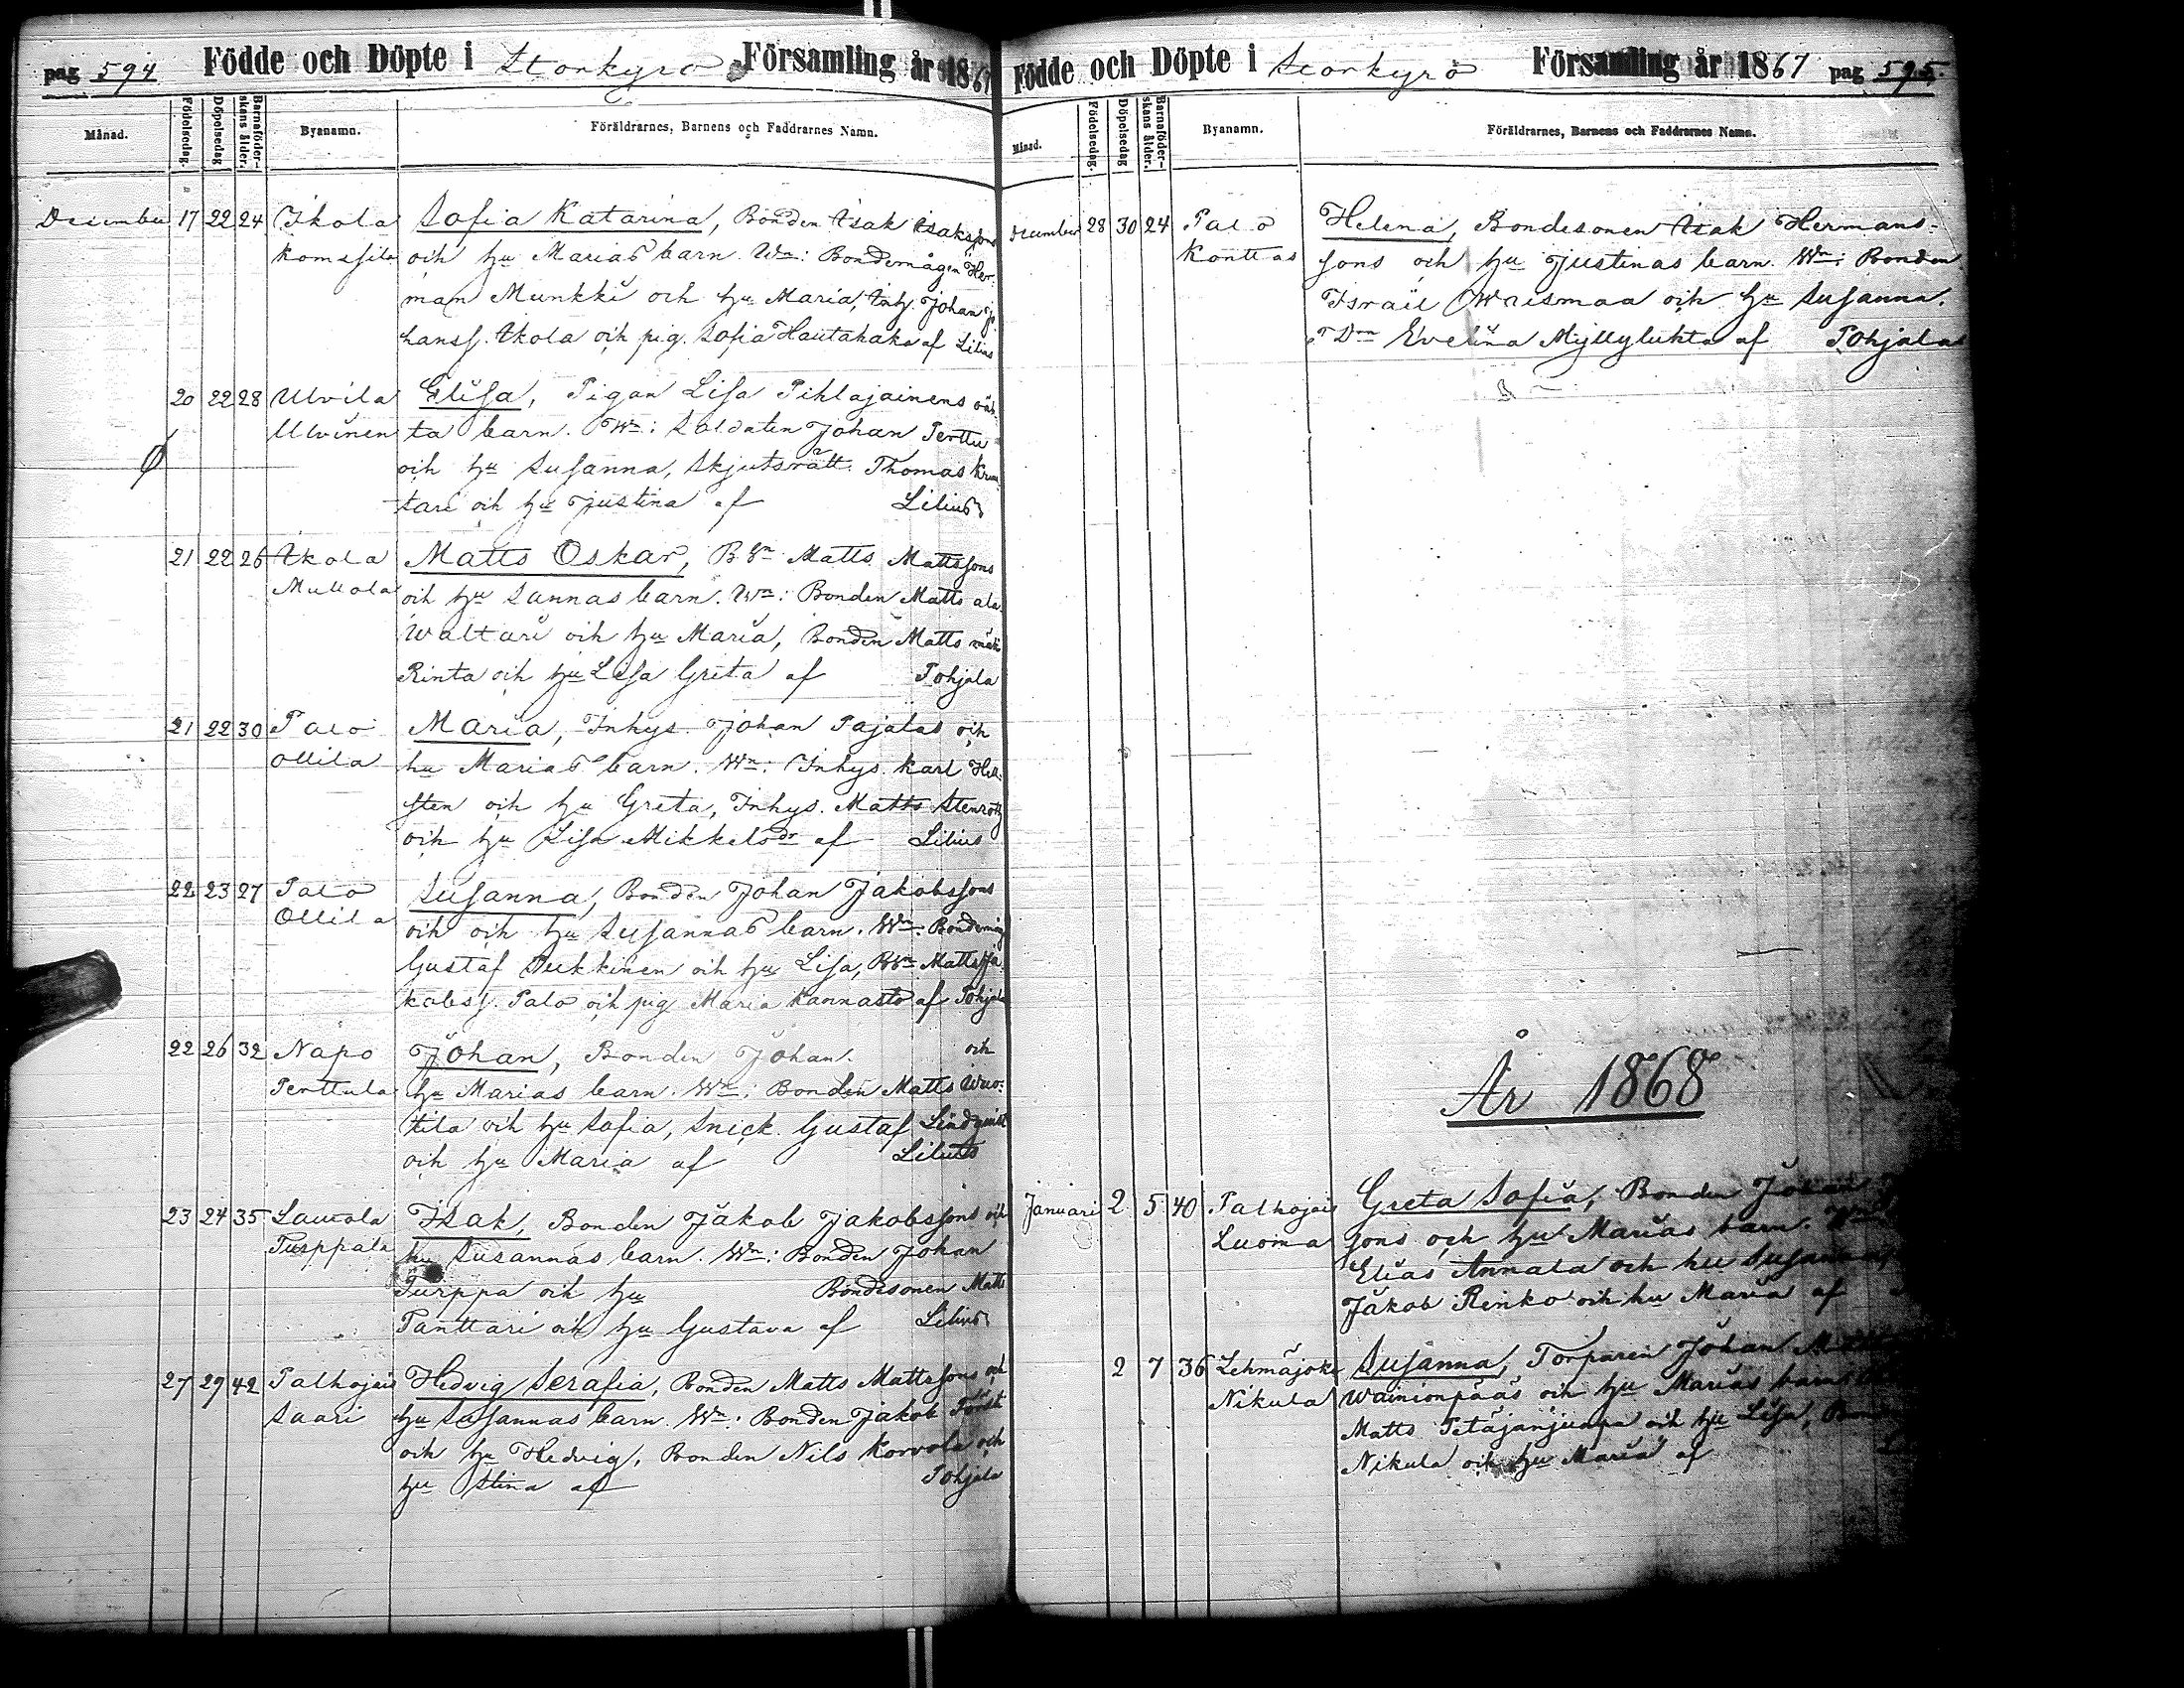 pag 594 Födde och Döpte i Storkyro Församling år 1867
Månad. Födelsedag. Döpelsedag Barnaföderskans ålder. Byanamn. Föräldrarnes, Barnens och Faddrarnes Namn.
December 17 22 24 Ikola Sofia Katarina, Bonden Isak Isakssons
Komsfila och hu Marias barn. Wn: Bondemågen Her-
man Munkki och hu Maria, Inh. Johan Jo-
hanss. Ikola och pig. Sofia Hautahaka af Lilius
20 22 28 Ulvila Elisa, Pigan Lisa Pihlajainens oäk-
Ulvinen ta barn. Wn: Soldaten Johan Perttu
och hu Susanna, Skjutsrätt. Thomas
tari och hu Justina af Lilius
21 22 26 Ikola Matts Oskar, B Sn Matts Mattssons
Mullola och hu Sannas barn. Wn: Bonden Matts ala
Waltari och hu Maria, Bonden Matts mäki
Rinta och hu Lisa Greta af Pohjala
21 22 30 Palo Maria, Inhys. Johan Pajalas och
Ollila hu Marias barn. Wn: Inhys. Karl Hell-
sten och hu Greta, Inhys. Matts Stenrott
och hu Lisa Mikkelsdr af Lilius
22 23 27 Palo Susanna, Bonden Johan Jakobssons
Ollila och och hu Susannas barn. Wn: Bondemåg
Gustaf Pukkinen och hu Lisa, BSn Matts Ja-
kobss. Palo och pig Maria Kannasto af Pohjala
22 26 32 Napo Johan, Bonden Johan och
Perttula hu Marias barn. Wn: Bonden Matts Wuo-
tila och hu Sofia, Snick. Gustaf Lindqvist
och hu Maria af Lilius
23 24 35 Laurola Isak, Bonden Jakob Jakobssons och
Turppala hu Susannas barn. Wn: Bonden Johan
Turppa och hu Bondesonen Matts
Panttari och hu Gustava af Lilius
27 29 42 Palhojais Hedvig Serafia, Bonden Matts Mattssons och
Saari hu Susannas barn. Wn: Bonden Jakob
och hu Hedvig, Bonden Nils Korvola och
hu Stina af Pohjala
Födde och Döpte i Storkyrö Församling år 1867 pag 595.
Månad. Födelsedag. Döpelsedag Barnaföderskans ålder. Byanamn. Föräldrarnes, Barnens och Faddrarnes Namn.
December 28 30 24 Palo Helena, Bondesonen Isak Hermans-
Konttas sons och hu Justinas barn. Wn: Bonden
Israël Waismaa och hu Susanna.
TDrn Evelina Myllyluhta af Pohjala
År 1868
Januari 2 5 40 Palhojais Greta Sofia, Bonden Johan
Luoma sons och hu Marias barn.
Elias Annala och hu Susanna
Jakob Rinko och hu Maria af
2 7 36 Lehmäjoki Susanna, Torparen Johan
Nikula Wainionpääs och hu Marias barn.
Matts och hu Lisa,
Nikula och hu Maria af